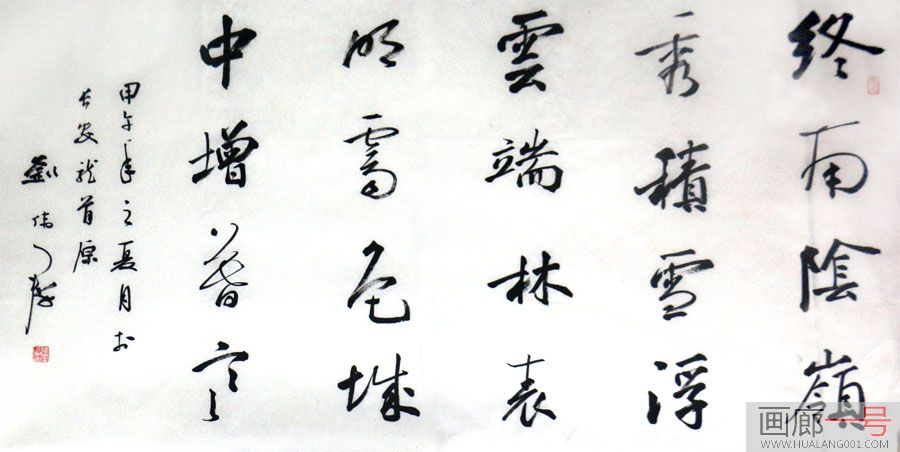 終南陰嶺
秀積雪浮
雲端林表
明霽色城
中增暮寒
甲午年之夏月於
長安龍首原
劉偉
画廊一号
WWW.HUALANG001.COM